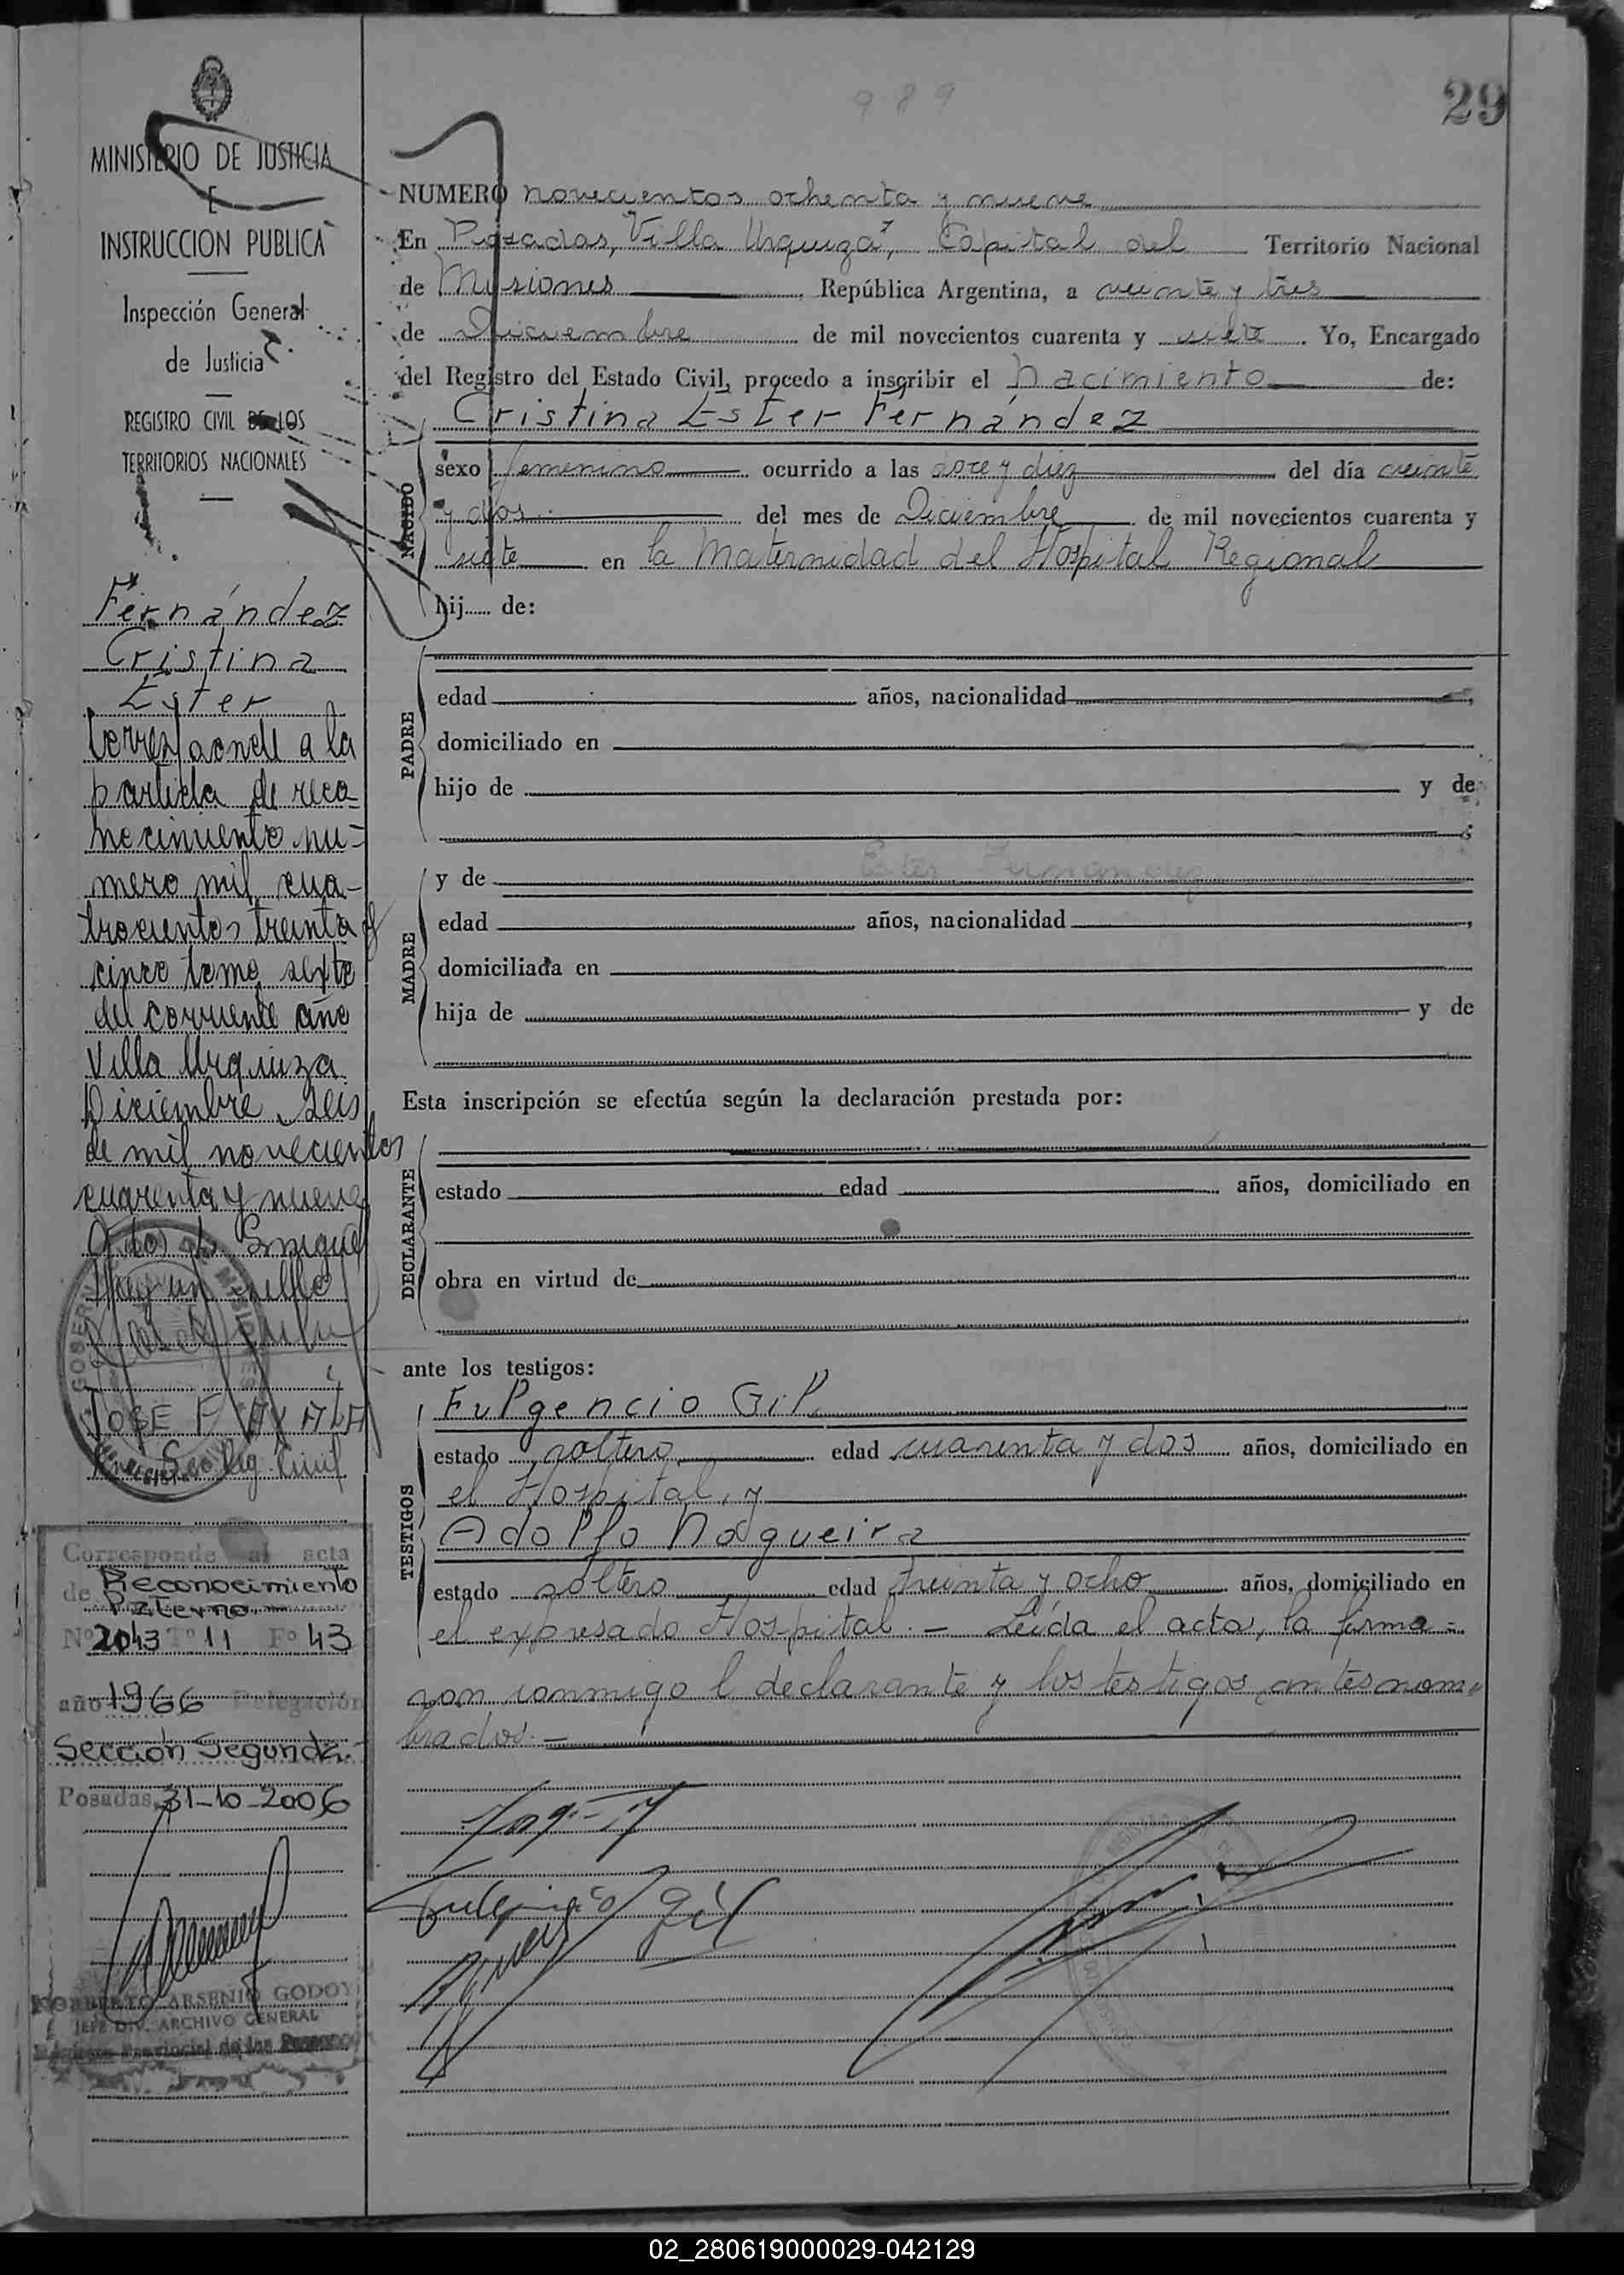 989
29
MINISTERIO DE JUSTICIA
E
INSTRUCCION PUBLICA
Inspección General
de Justicia
REGISTRO CIVIL DE LOS
TERRITORIOS NACIONALES
Fernández
Cristina
Ester
Corresponde a la
partida de reco-
nocimiento nú-
mero mil cua-
trocientos treinta y
cinco tomo sexto
del corriente año
Villa Urquiza
Diciembre seis
de mil novecientos
cuarenta y nueve
Hay un sello
JOSE F AYALA
Corresponde al acta
de Reconocimiento
Paterno
Nº 2043 Tº 11 Fº 43
año 1966 Delegación
Sección Segunda.
Posadas, 31-10-2006
NORBERTO ARSENIO GODOY
JEFE DIV. ARCHIVO GENERAL
Registro Provincial de las Personas
NUMERO novecientos ochenta y nueve
En Posadas, Villa Urquiza, Capital del Territorio Nacional
de Misiones, República Argentina, a veinte y tres
de Diciembre de mil novecientos cuarenta y siete. Yo, Encargado
del Registro del Estado Civil, procedo a inscribir el nacimiento de:
NACIDO
Cristina Ester Fernández
sexo femenino ocurrido a las doce y diez del día veinte
y dos del mes de Diciembre de mil novecientos cuarenta y
siete en la Maternidad del Hospital Regional
hij...... de:
PADRE
edad años, nacionalidad ,
domiciliado en
hijo de y de
;
MADRE
y de Ester Fernandez
edad años, nacionalidad ,
domiciliada en
hija de y de
Esta inscripción se efectúa según la declaración prestada por:
DECLARANTE
estado edad años, domiciliado en
obra en virtud de
ante los testigos:
TESTIGOS
Fulgencio Gil
estado soltero edad cuarenta y dos años, domiciliado en
el Hospital, y
Adolfo Nogueira
estado soltero edad treinta y ocho años, domiciliado en
el expresado Hospital.- Leída el acta, la firma=
ron conmigo l declarante y los testigos antes nom=
brados.-
Fulgencio Gil
02_280619000029-042129